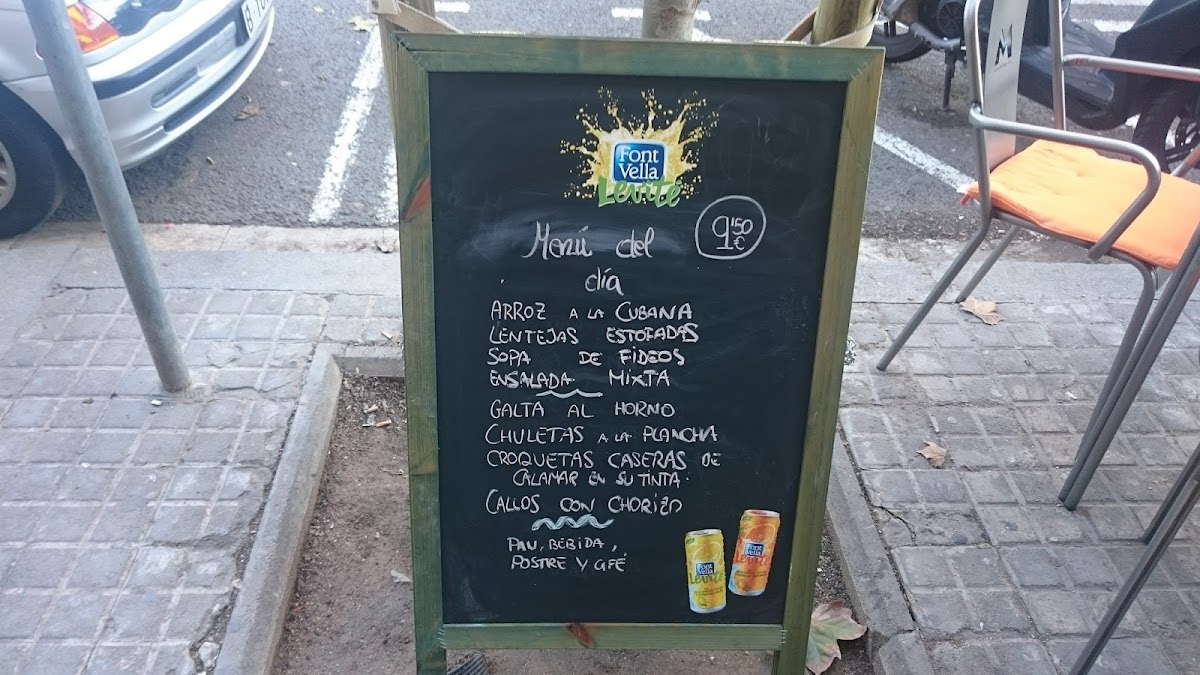 Font
Vella
Levité
Menú del
día
9'50
€
ARROZ A LA CUBANA
LENTEJAS ESTOFADAS
SOPA DE FIDEOS
ENSALADA MIXTA
GALTA AL HORNO
CHULETAS A LA PLANCHA
CROQUETAS CASERAS DE
CALAMAR EN SU TINTA.
CALLOS CON CHORIZO
PAN, BEBIDA,
POSTRE Y CAFÉ
Font
Vella
Levité
Font
Vella
Levité
M